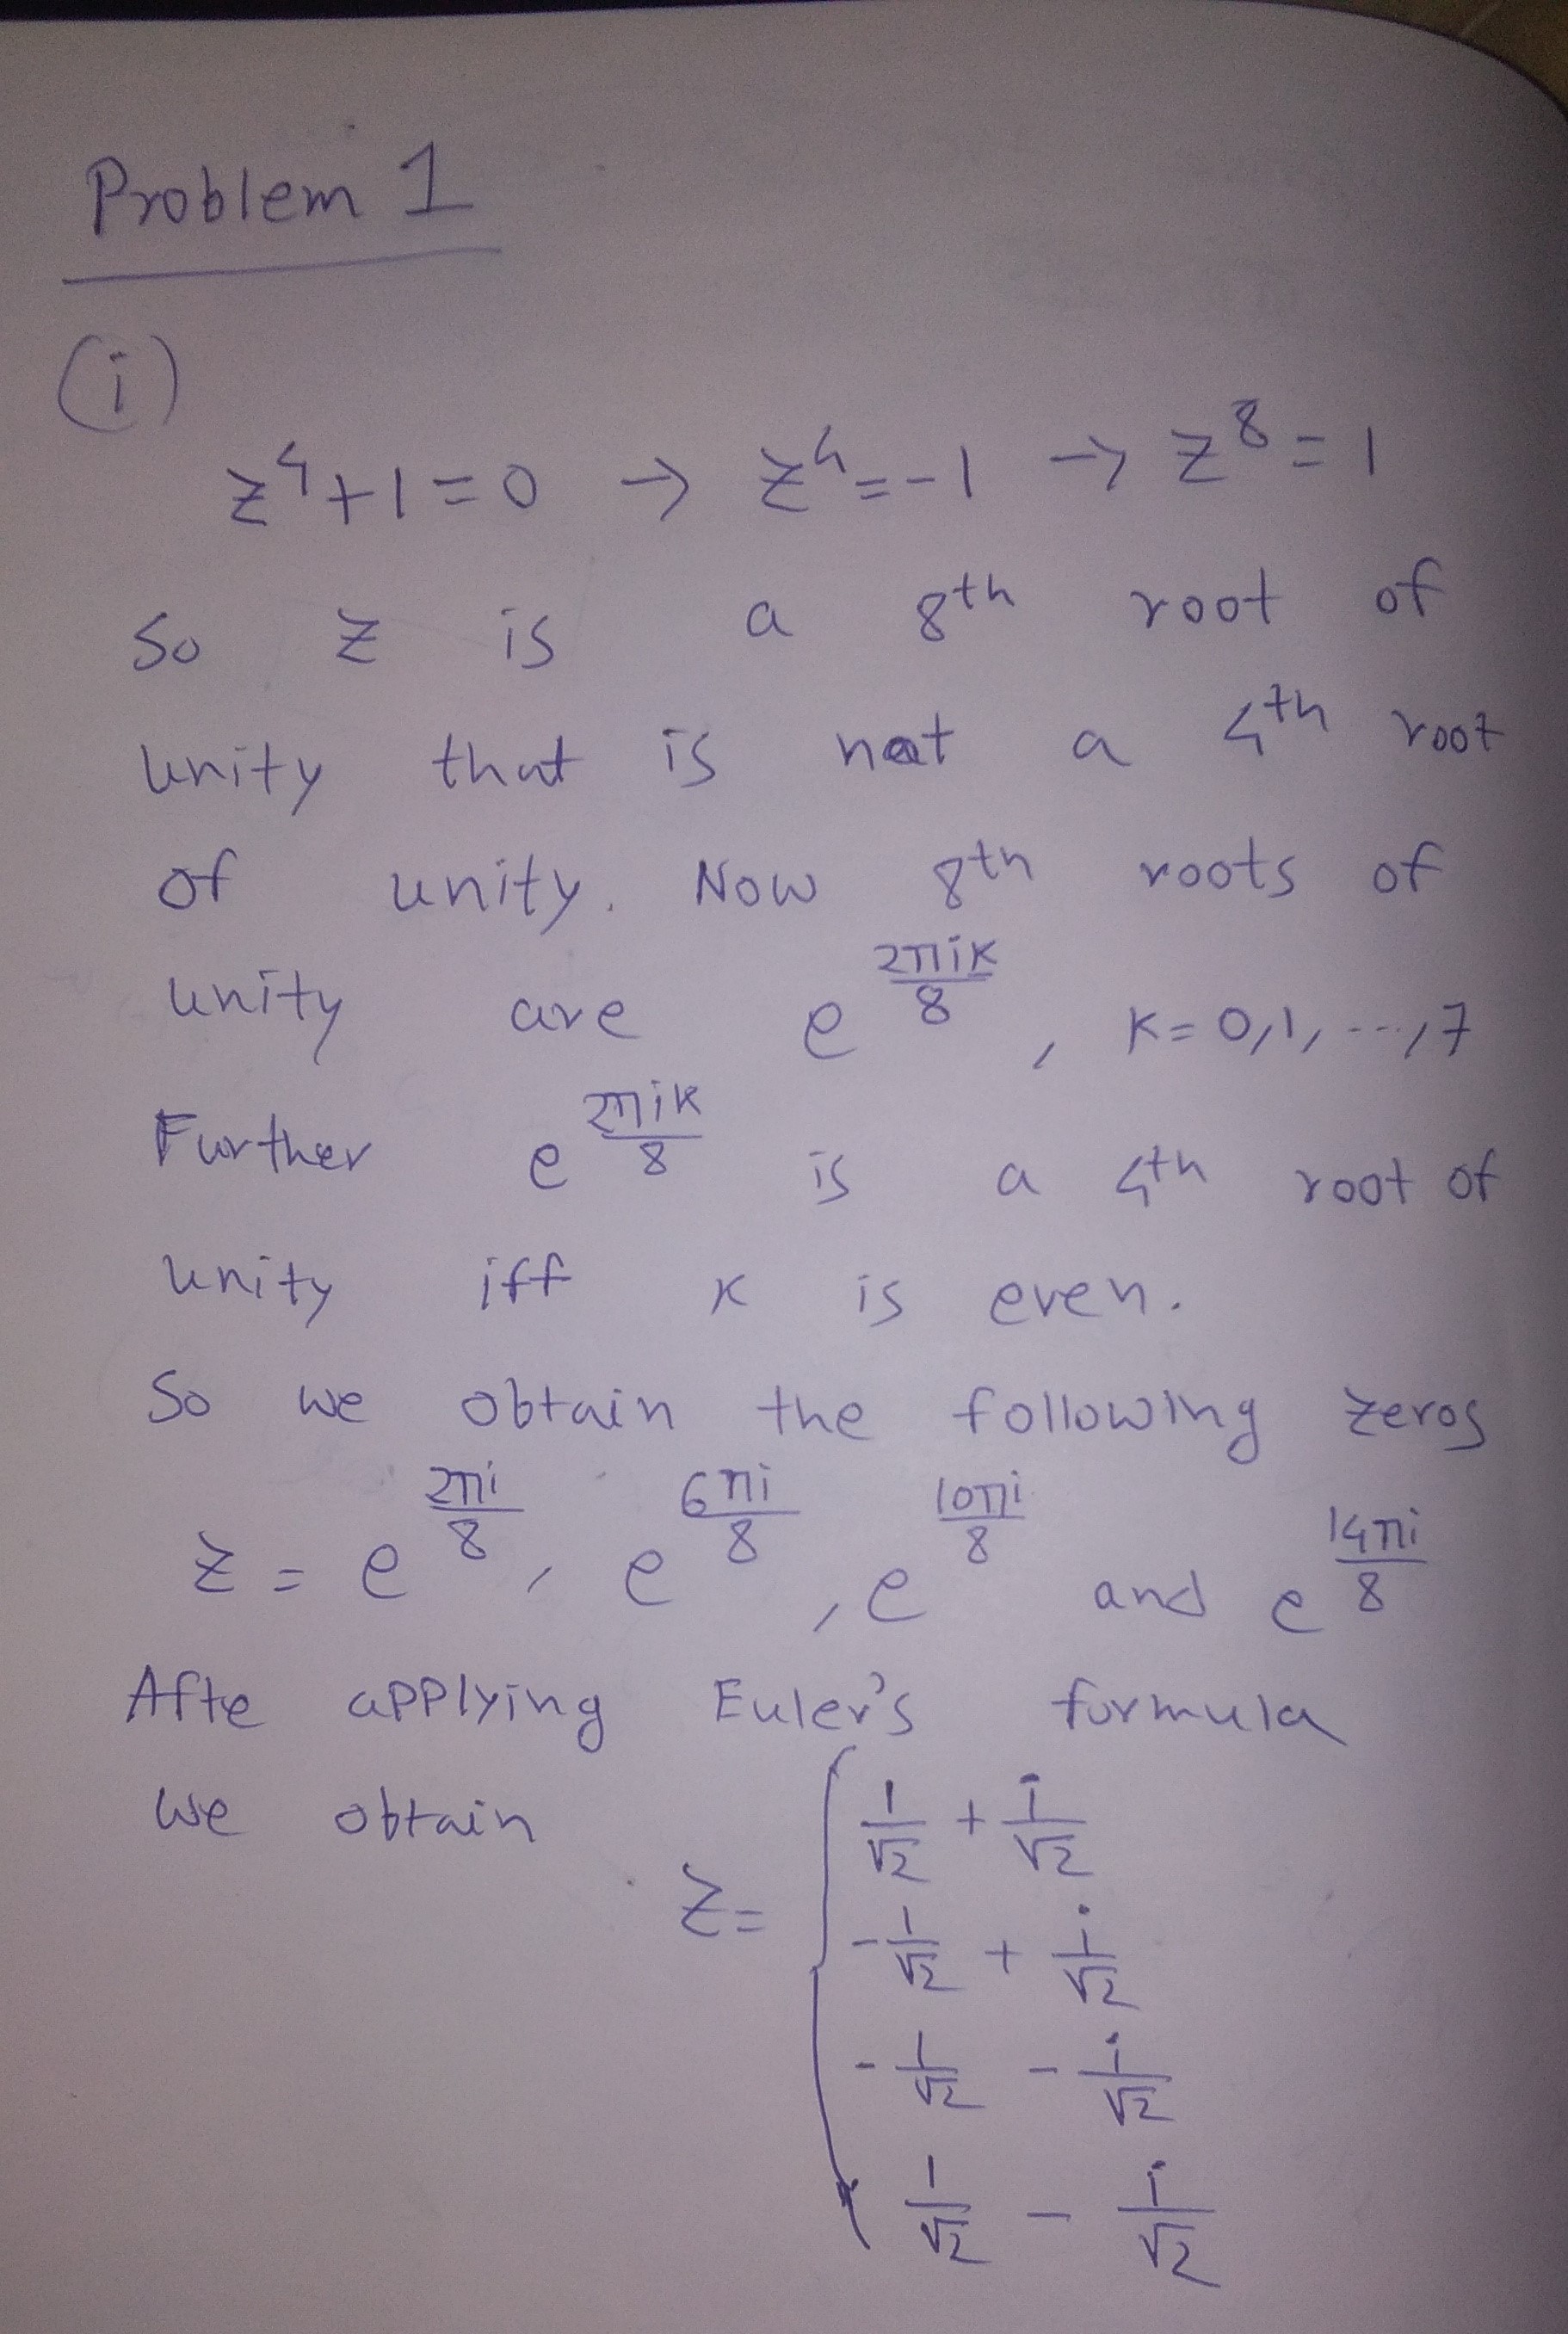 Problem 1
(i)
z⁴+1=0 → z⁴=-1 → z⁸=1
So z is a 8th root of
unity that is not a 4th root
of unity. Now 8th roots of
unity are e^(2πik/8), k=0,1,---,7
Further e^(2πik/8) is a 4th root of
unity iff k is even.
So we obtain the following zeros
z = e^(2πi/8), e^(6πi/8), e^(10πi/8) and e^(14πi/8)
Afte applying Euler's formula
we obtain
z= { 1/√2 + i/√2
-1/√2 + i/√2
-1/√2 - i/√2
1/√2 - i/√2